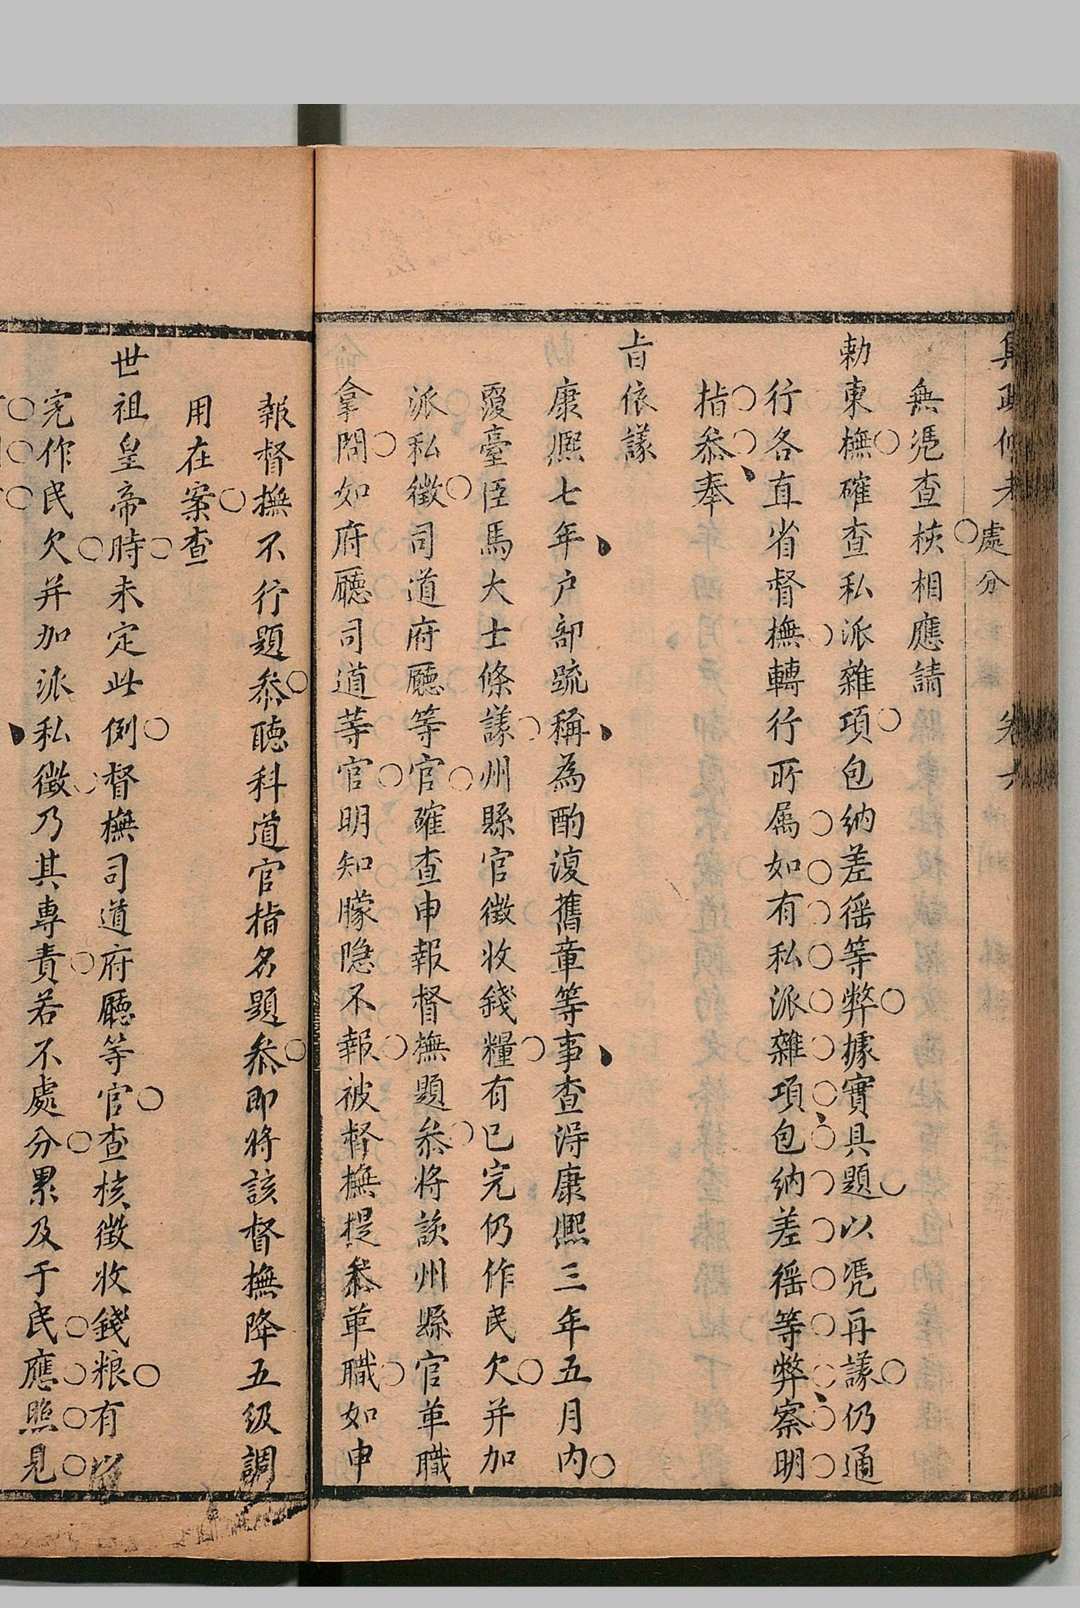 處分 卷六
無憑查核相應請
勅東撫確查私派雜項包納差徭等弊據實具題以凭再議仍通
行各直省督撫轉行所属如有私派雜項包納差徭等弊察明
指叅奉
旨依議
康熙七年户部疏稱為酌復舊章等事查得康熙三年五月内
覆臺臣馬大士條議州縣官徵收錢糧有已完仍作民欠并加
派私徵司道府廳等官確查申報督撫題叅將該州縣官革職
拿問如府廳司道等官明知朦隐不報被督撫提叅革職如申
報督撫不行題叅聽科道官指名題叅即將該督撫降五級調
用在案查
世祖皇帝時未定此例督撫司道府廳等官查核徵收錢粮有以
完作民欠并加派私徵乃其專責若不處分累及于民應照見